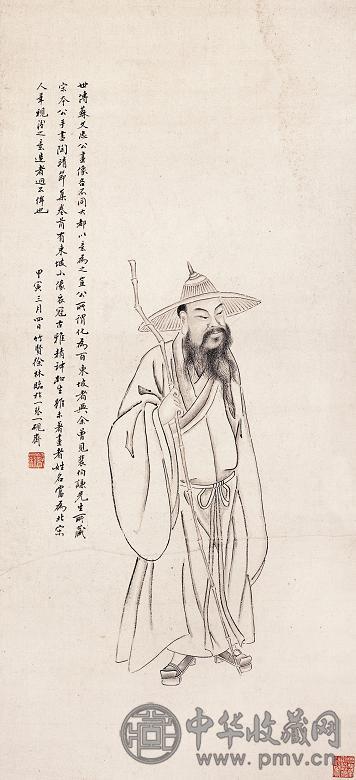 世傳蘇文忠公畫像各不同大都以意為之豈公所謂化為百東坡者與余曾見裴伯謙先生所藏
宋本公手書陶靖節集卷首有東坡小像衣冠古雅精神如生雖未著畫者姓名當為北宋
人筆視後之意造者迥不侔也
甲寅三月四日竹賢徐林臨於一琴一硯齋
中华收藏网
www.pmv.cn